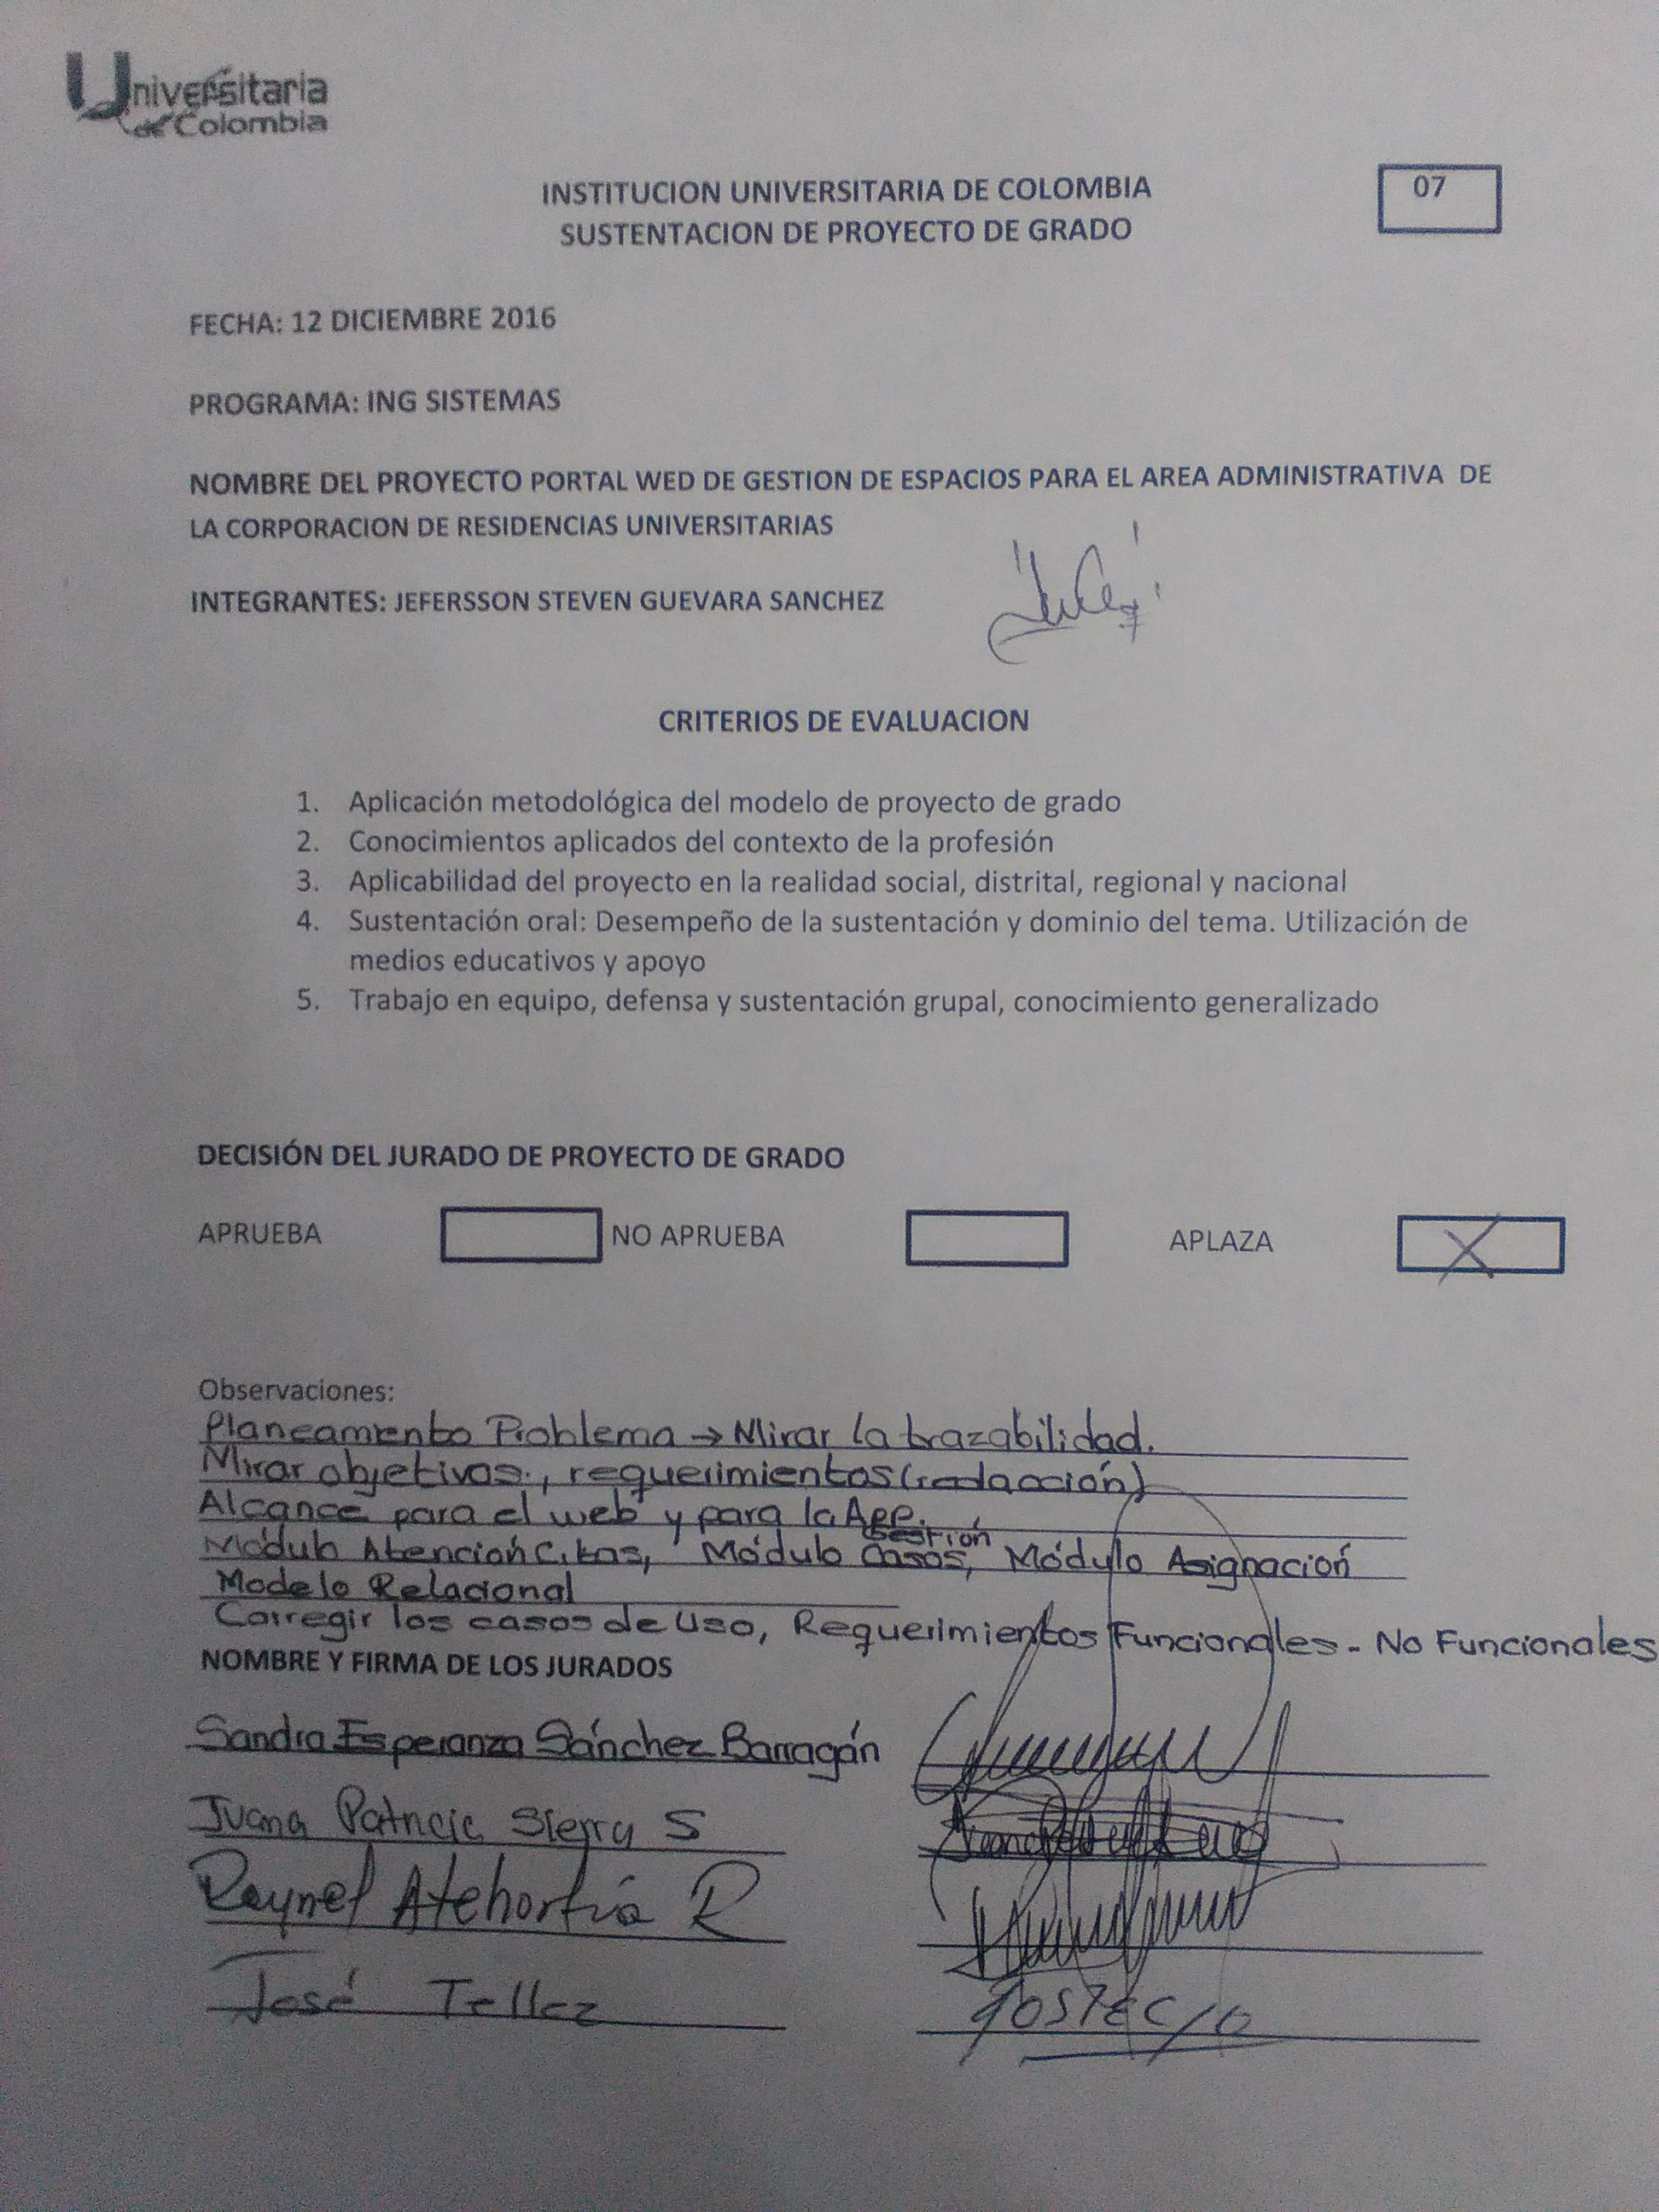 Universitaria
de Colombia
INSTITUCION UNIVERSITARIA DE COLOMBIA
07
SUSTENTACION DE PROYECTO DE GRADO
FECHA: 12 DICIEMBRE 2016
PROGRAMA: ING SISTEMAS
NOMBRE DEL PROYECTO PORTAL WED DE GESTION DE ESPACIOS PARA EL AREA ADMINISTRATIVA DE
LA CORPORACION DE RESIDENCIAS UNIVERSITARIAS
INTEGRANTES: JEFERSSON STEVEN GUEVARA SANCHEZ
CRITERIOS DE EVALUACION
1. Aplicación metodológica del modelo de proyecto de grado
2. Conocimientos aplicados del contexto de la profesión
3. Aplicabilidad del proyecto en la realidad social, distrital, regional y nacional
4. Sustentación oral: Desempeño de la sustentación y dominio del tema. Utilización de
medios educativos y apoyo
5. Trabajo en equipo, defensa y sustentación grupal, conocimiento generalizado
DECISIÓN DEL JURADO DE PROYECTO DE GRADO
APRUEBA NO APRUEBA APLAZA X
Observaciones:
Planeamiento Problema → Mirar la trazabilidad.
Mirar objetivos, requerimientos (redacción)
Alcance para el web y para la App.
Módulo Atención Citas, Módulo Gestión Casos, Módulo Asignación
Modelo Relacional
Corregir los casos de Uso, Requerimientos Funcionales - No Funcionales
NOMBRE Y FIRMA DE LOS JURADOS
Sandra Esperanza Sánchez Barragán
Juana Patricia Sierra S
Reynel Atehortúa R
José Tellez